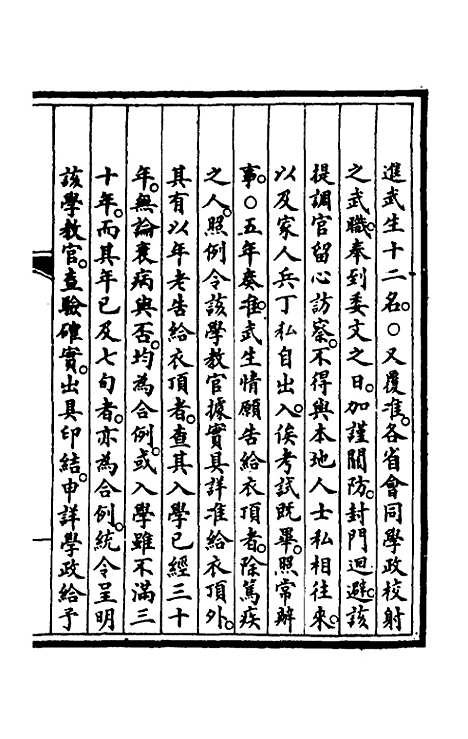 進武生十二名。○又覆准。各省會同學政校射
之武職。奉到委文之日。加謹關防。封門迴避。該
提調官留心訪察。不得與本地人士私相往來。
以及家人兵丁私自出入。俟考試既畢。照常辦
事。○五年奏准。武生情願告給衣頂者。除篤疾
之人。照例令該學教官據實具詳准給衣頂外。
其有以年老告給衣頂者。查其入學已經三十
年。無論衰病與否。均為合例。或入學雖不滿三
十年。而其年已及七旬者。亦為合例。統令呈明
該學教官。查驗確實。出具印結。申詳學政給予